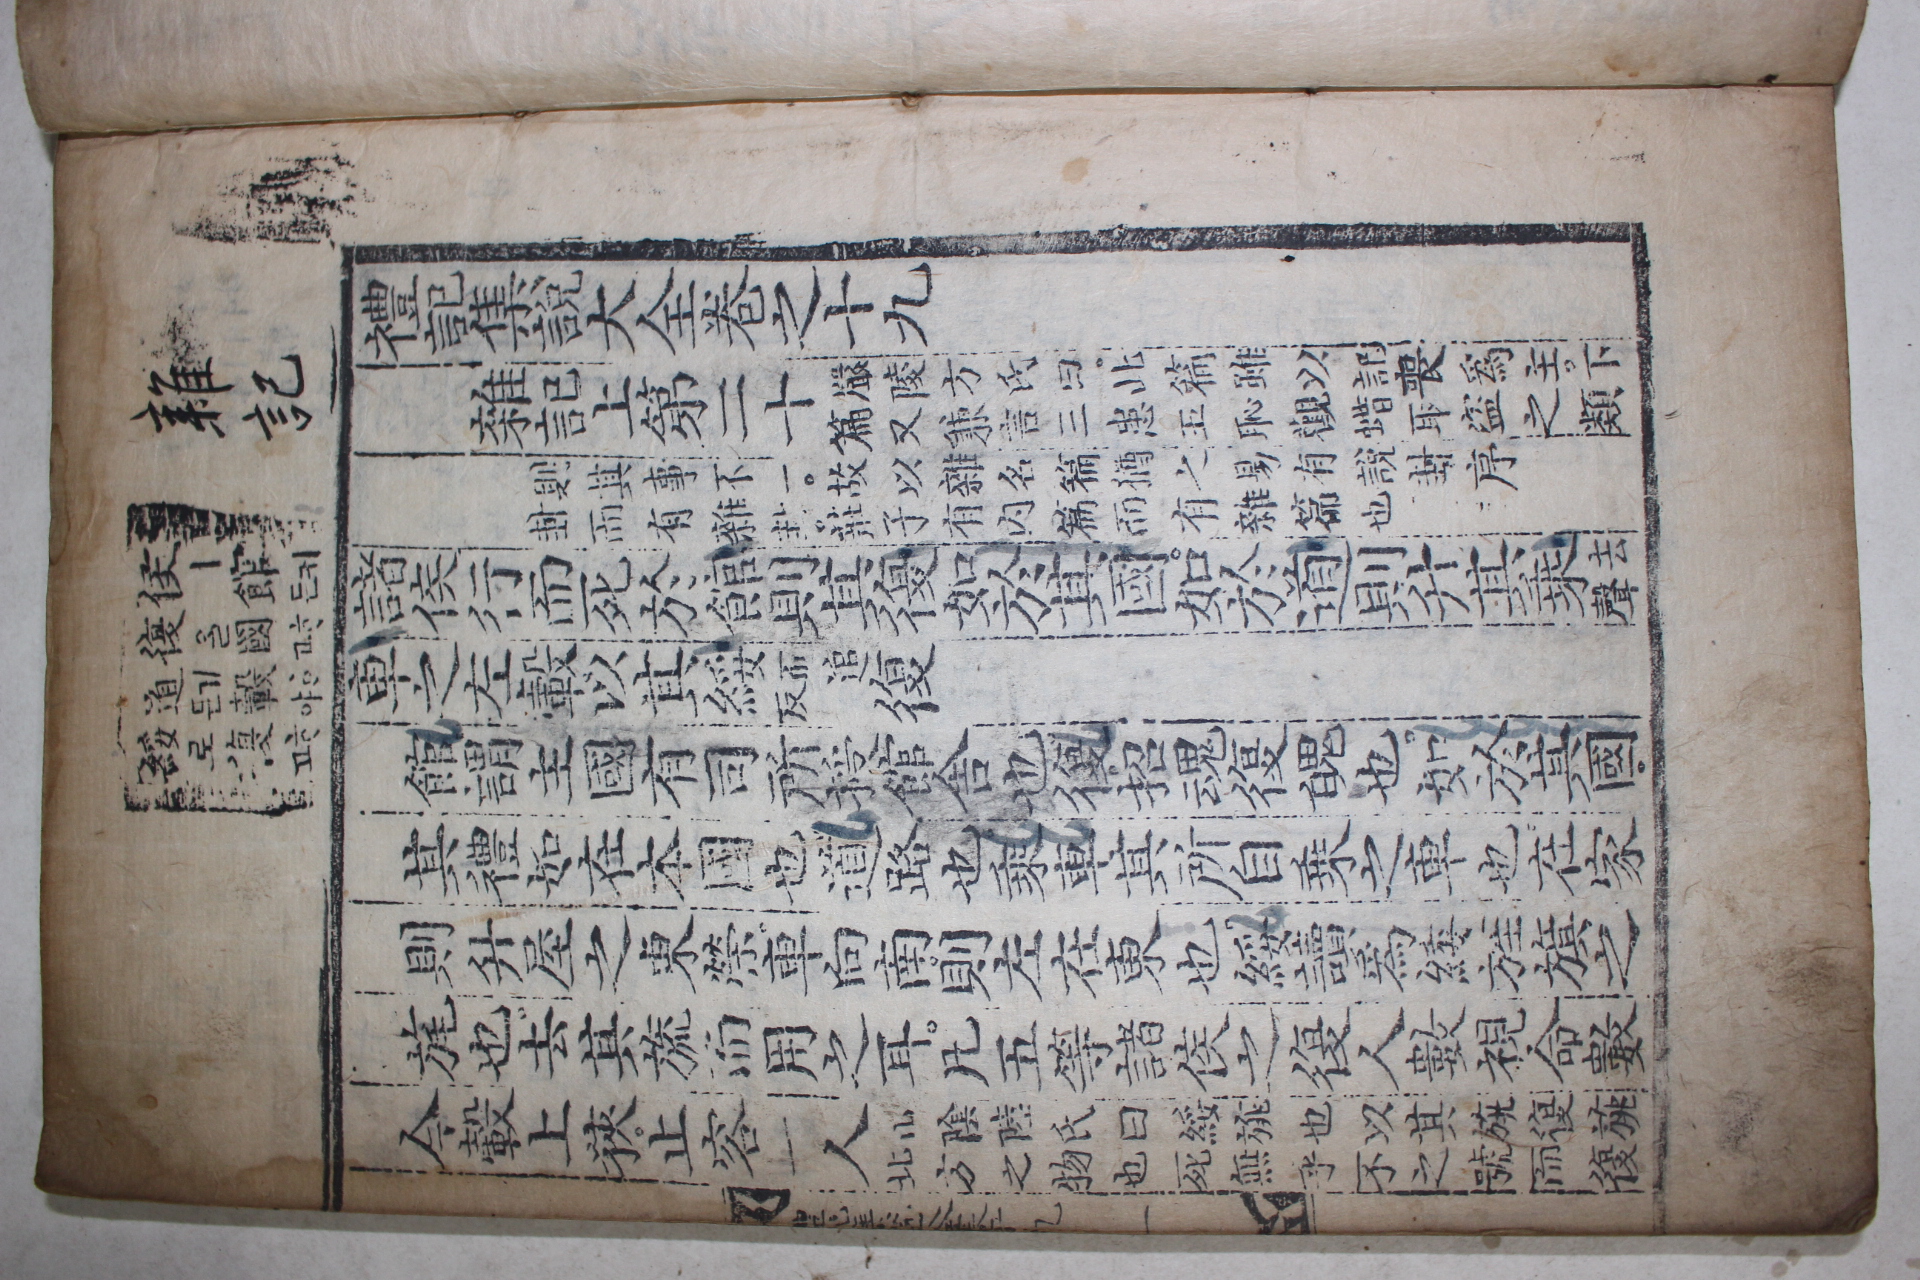 雜記
侯ㅣ館든
復을國과
道든轂야
綏로復과
禮記集說大全卷之十九
雜記上第二十
嚴陵方氏曰此篇雖以記喪爲主下
篇又兼言三患五恥觀蜡取盜之類
則其事不一。故以雜名篇猶之易有說卦序
卦而有雜卦。莊子有內篇而有雜篇也
諸侯行而死於館則其復如於其國。如於道則升其乘去聲
車之左轂以其綏而追反復
館謂主國有司所授館舍也復招魂復魄也。如於其國。
其禮如在本國也道路也乘車其所自乘之車也。在家
則升屋之東榮。車向南。則左在東也綏讀爲緌旌旗之
旄也去其旒而用之耳。凡五等諸侯之復人數視命數
今轂上狹。止容一人
山陰陸氏曰綏旒也以其旒復旒
北方之物也死無乎不之號而復